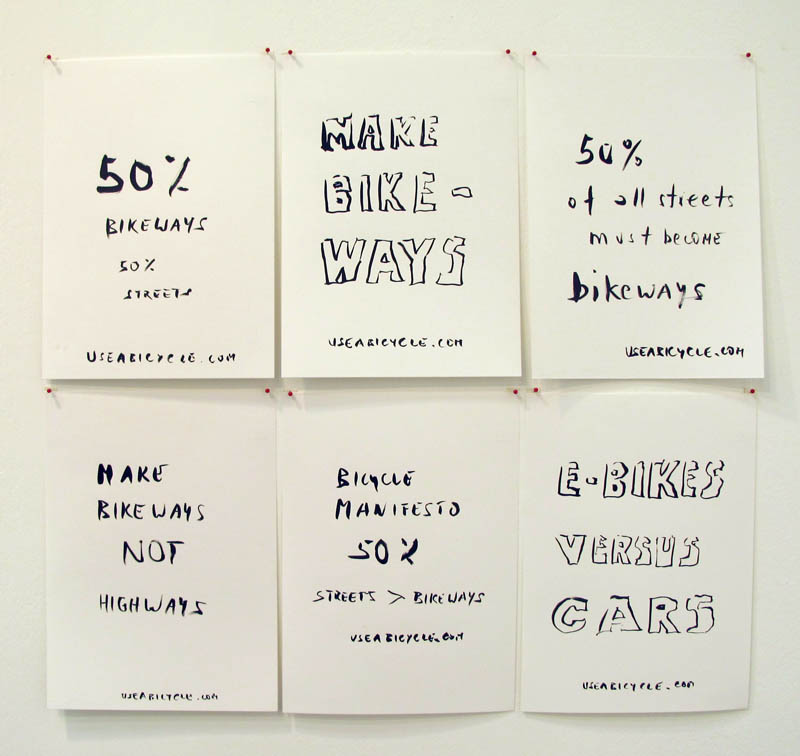 50%
BIKEWAYS
50%
STREETS
USEABICYCLE.COM
MAKE
BIKE-
WAYS
USEABICYCLE.COM
50%
of all streets
must become
bikeways
USEABICYCLE.COM
MAKE
BIKEWAYS
NOT
HIGHWAYS
USEABICYCLE.COM
BICYCLE
MANIFESTO
50%
STREETS > BIKEWAYS
USEABICYCLE.COM
E-BIKES
VERSUS
CARS
USEABICYCLE.COM